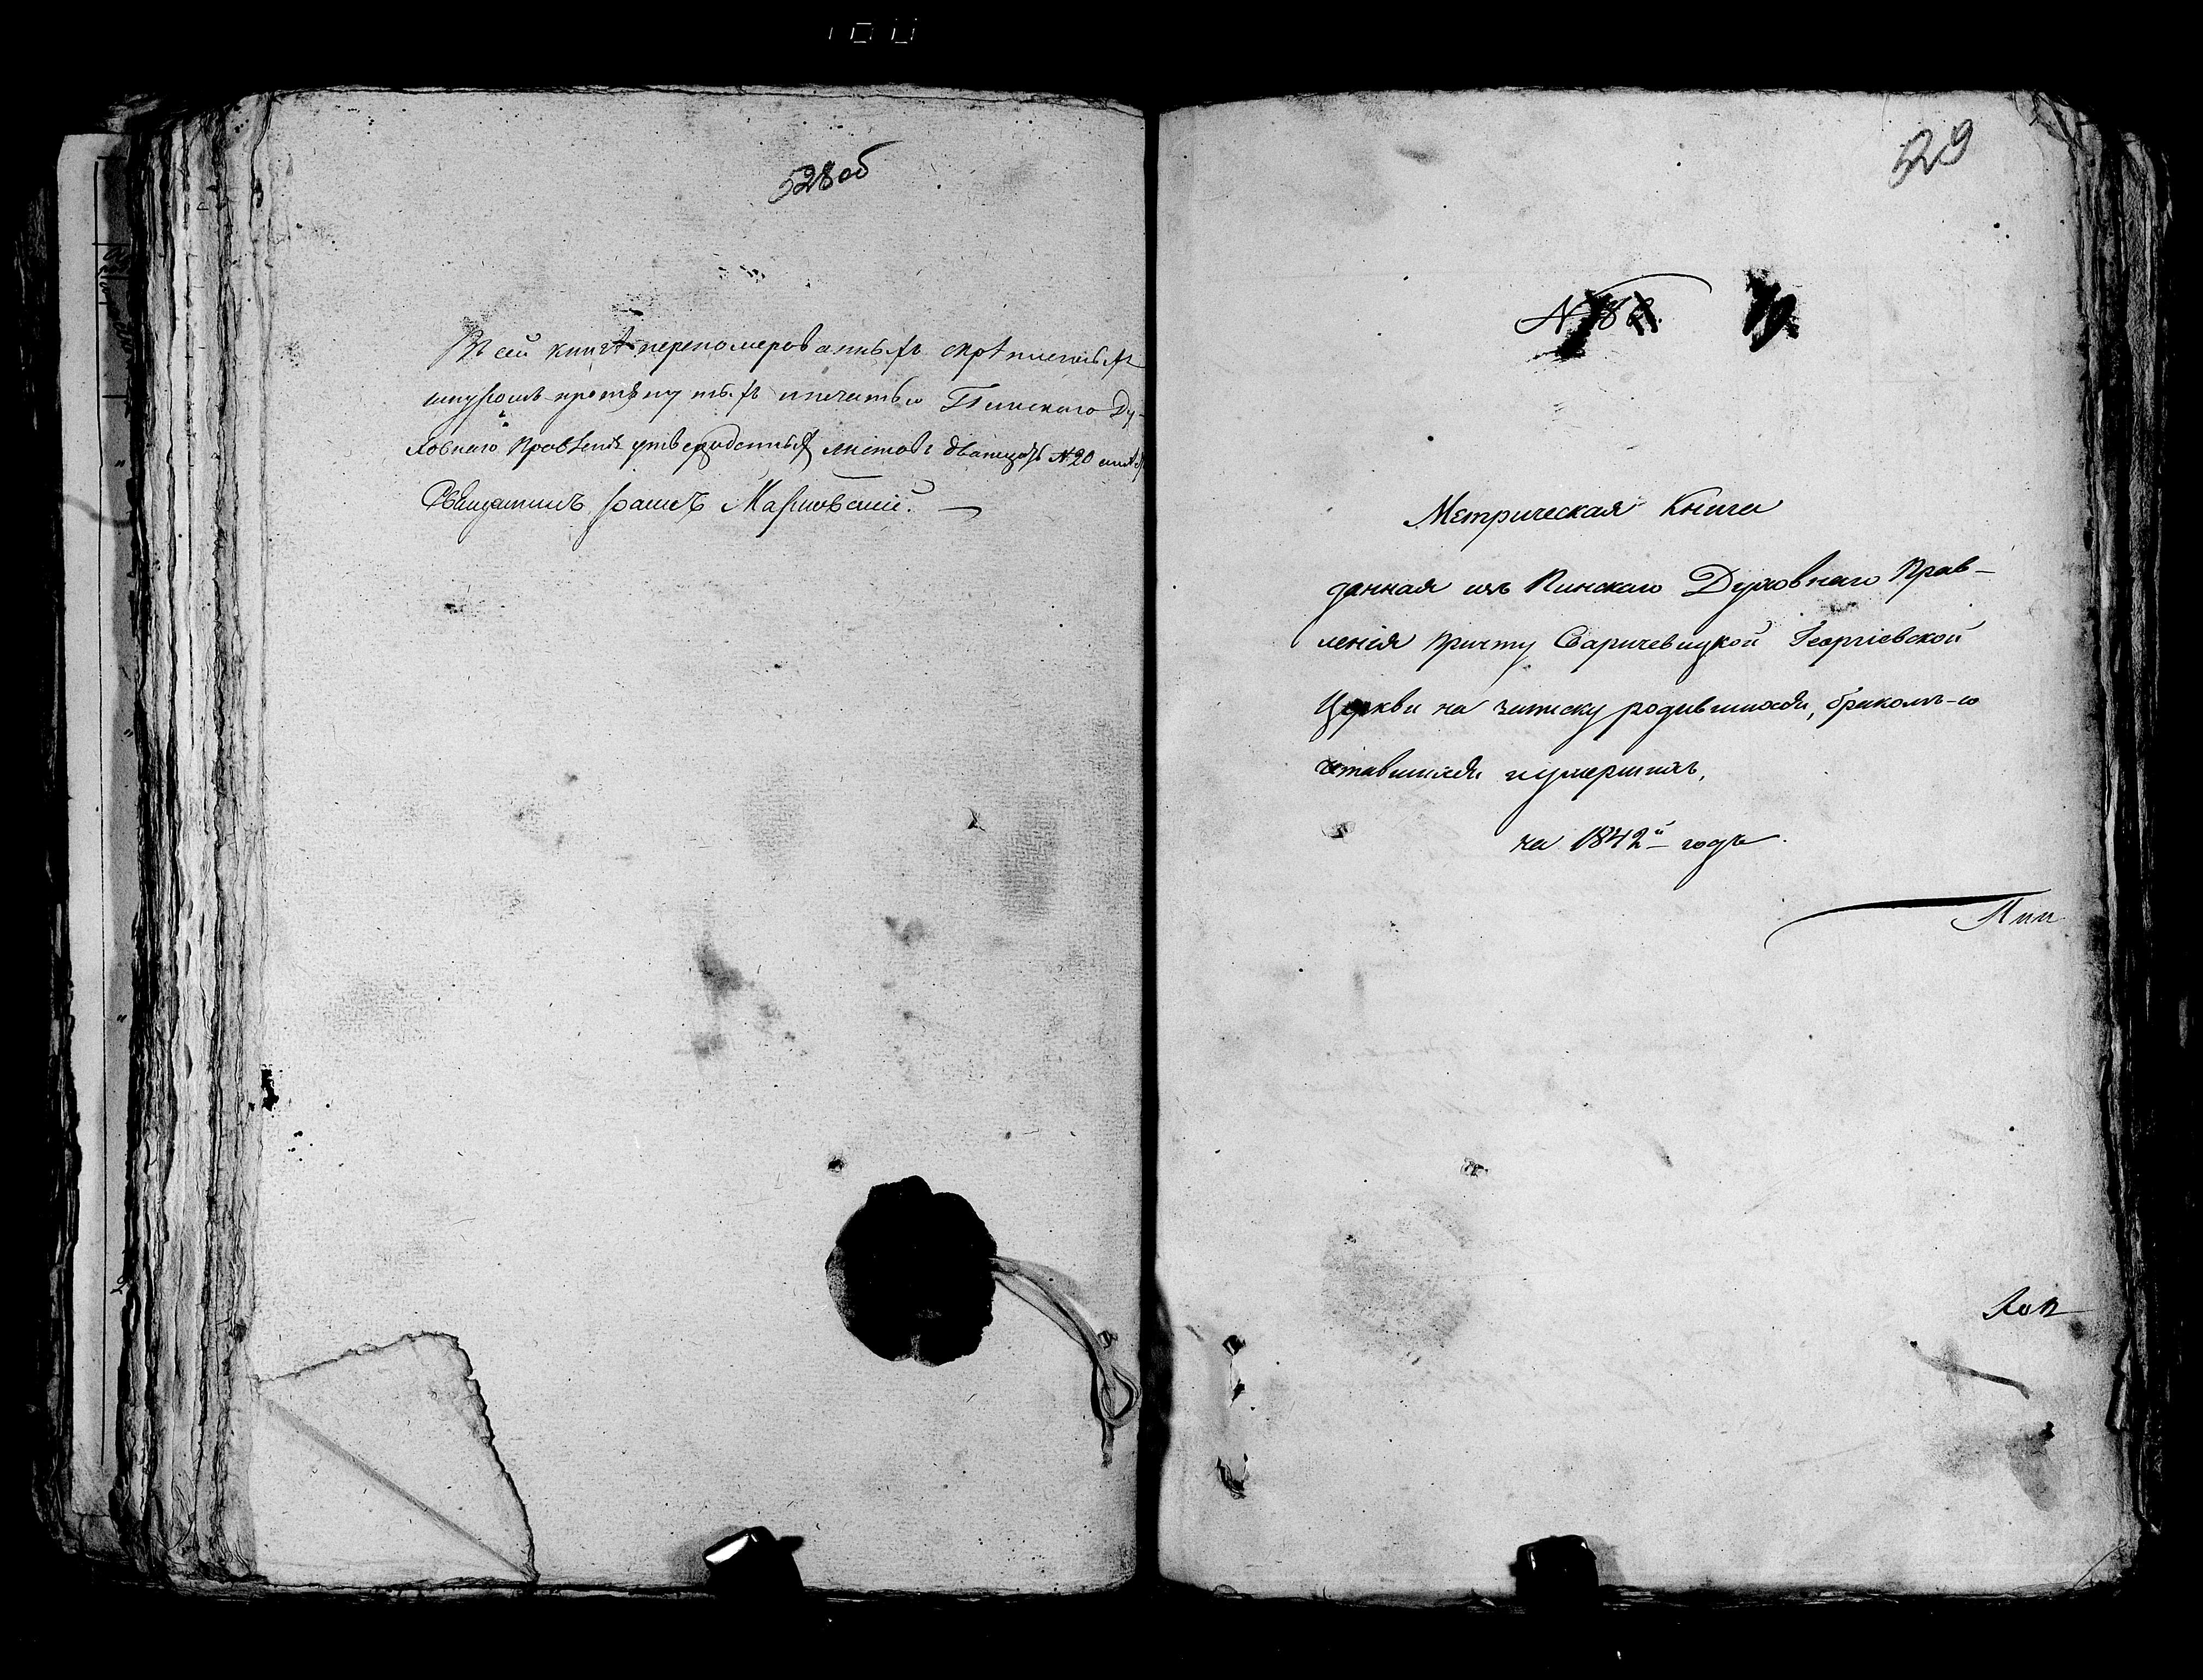 528об
Въ сей книгѣ перенумерованныхъ скрѣпленныхъ
шнуромъ протянутыхъ и печатью Пинскаго Ду-
ховнаго Правленія утвержденныхъ листовъ двадцать №20
Священникъ Марковскій.
529
№
Метрическая Книга
данная изъ Пинскаго Духовнаго Прав-
ленія причту Сваричевицкой Георгіевской
Церкви на записку родившихся, бракомъ-со
четавшихся и умершихъ,
на 1842й годъ.
Пин